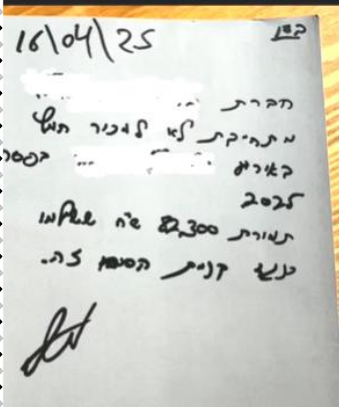 בס"ד
16/04/25
חברת
מתחייבת לא למכור חמץ
באירוע בפסח
2025
תמורת 82,300 ש"ח ששילמו
כנגד קניית הסכם זה.